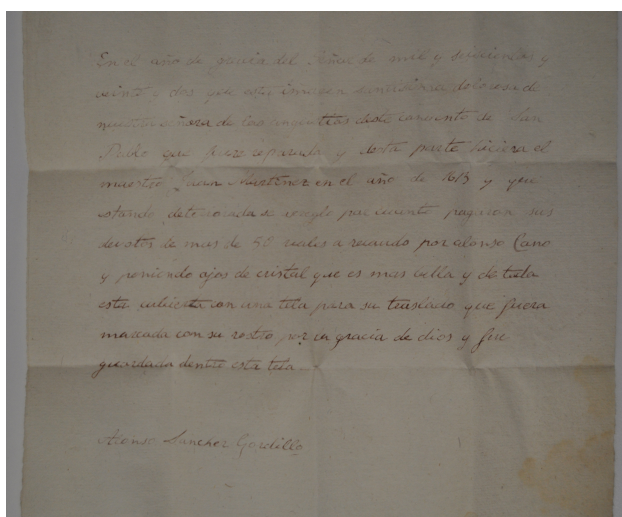 En el año de gracia del Señor de mil y seiscientos y
veinte y dos que esta imagen santisima dolorosa de
nuestra señora de las angustias deste convento de San
Pablo que fuere reparada y desta parte hiciera el
maestro Juan Martinez en el año de 1613 y que
estando deteriorada se areglo pagaron sus
devotos de mas de 50 reales a recaudo por alonso Cano
y poniendo ojos de cristal que es mas bella y de tuela
esta cubierta con una tela para su traslado que fuera
marcada con su rostro por la gracia de dios y fue
guardada dentro esta tela
Alonso Sanchez Gordillo